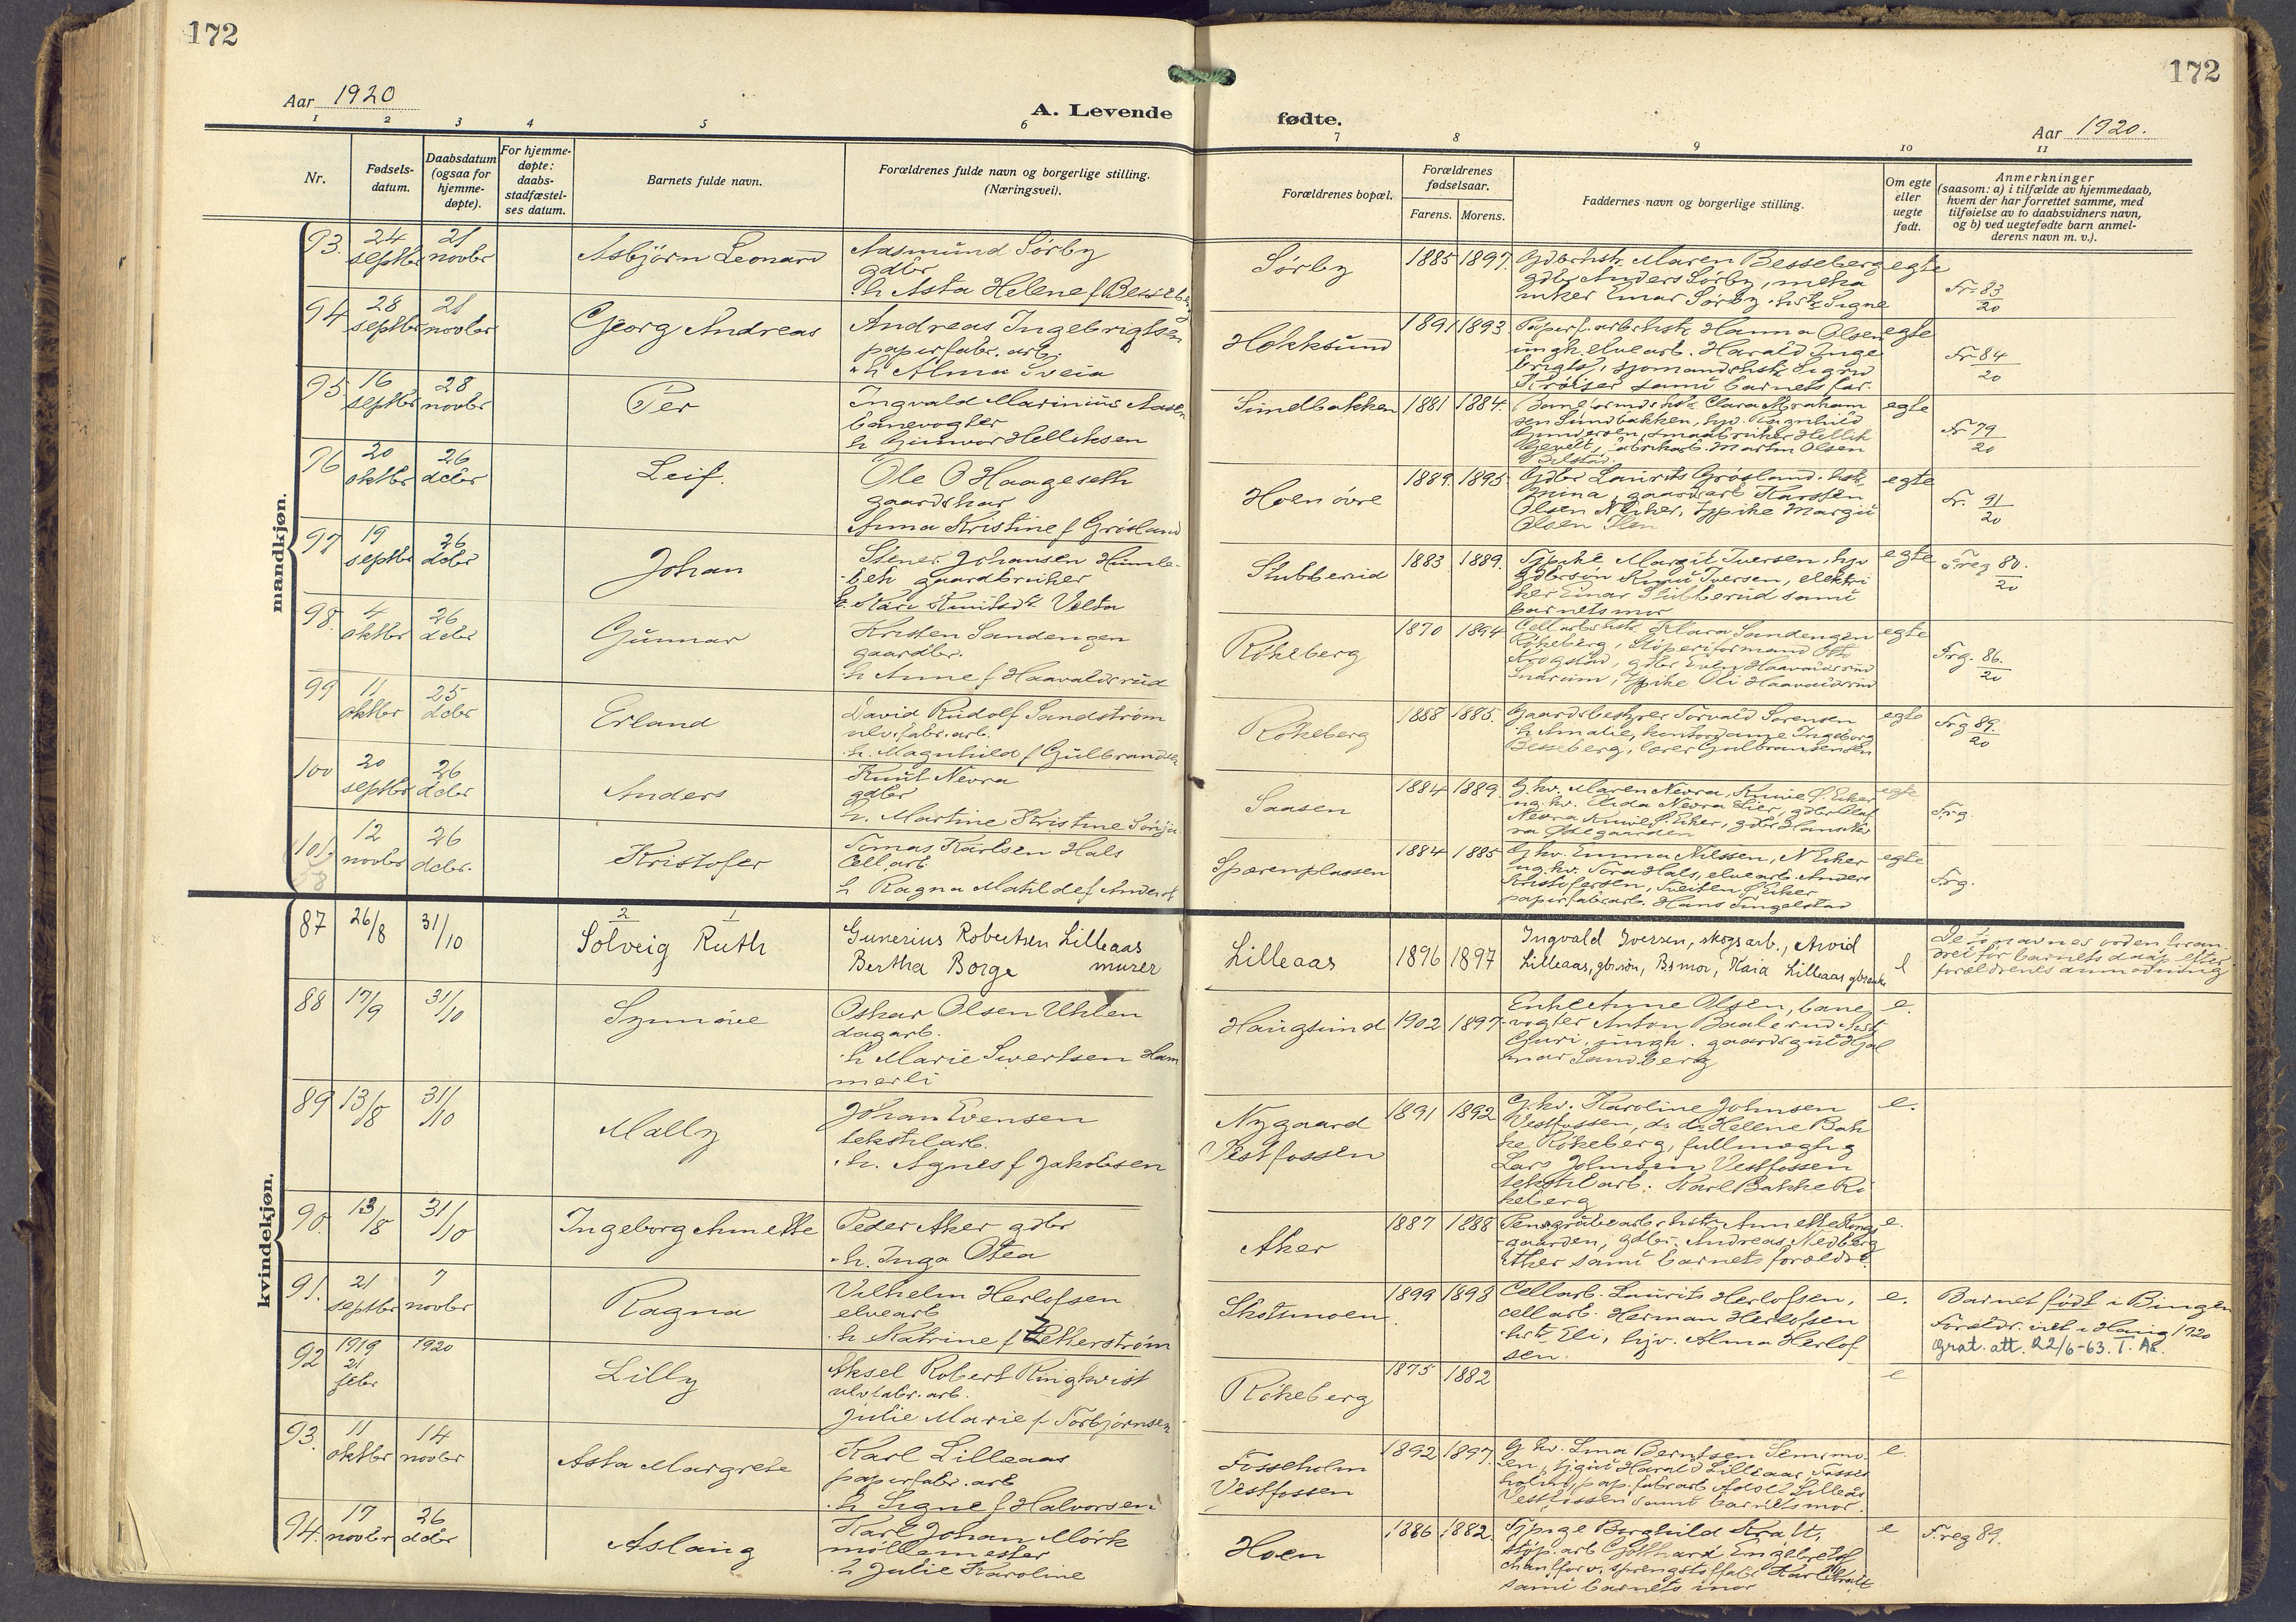 172
172
Aar 1920
A. Levende
fødte.
Aar 1920.
1 2 3 4 5 6 7 8 9 10 11
Nr.
Fødsels-
datum.
Daabsdatum
(ogsaa for
hjemme-
døpte).
For hjemme-
døpte:
daabs-
stadfæstel-
ses datum.
Barnets fulde navn.
Forældrenes fulde navn og borgerlige stilling.
(Næringsvei).
Forældrenes bopæl.
Forældrenes
fødselsaar.
Farens. Morens.
Faddernes navn og borgerlige stilling.
Om egte
eller
uegte
født.
Anmerkninger
(saasom: a) i tilfælde av hjemmedaab,
hvem der har forrettet samme, med
tilføielse av to daabsvidners navn,
og b) ved uegtefødte barn anmel-
derens navn m. v.).
mandkjøn.
93. 24 septbr 21 novbr
Asbjörn Leonard
Aasmund Sørby
gdbr
h Asta Helene f Besseberg
Sørby
1885 1897.
Gdbrhstr Maren Besseberg
gdbr Anders Sørby, meka
niker Einar Sørby hstr Signe
egte
Fr. 83/20
94 28 septbr 21 novbr
Georg Andreas
Andreas Ingebrigtsen
papirfabr. arb.
h Alma Sveia
Hokksund
1891 1893
Papirf. arb hstr Hanna Olsen
ungk. elvearb. Harald Inge
brigts., sjømandshstr Sigrid
samt barnets far.
egte
Fr 84/20
95 16 septbr 28 novbr
Per
Ingvald Marinius Aasen
banevogter
h Gunvor Helliksen
Sundbakken
1881 1884.
Baneformds hstr Clara Abraham
sen Sundbakken, hjv. Ragnhild
Gundersen, smaabruker Hellik
fabrikarb. Martin Olsen
egte
Fr 79/20
96 20 oktbr 26 dcbr
Leif.
Ole O Haageseth
gaardskar
Anna Kristine f Grøsland
Hoen övre
1889. 1895
Gdbr Laurits Grøsland. hstr
gaardsarb Karsten
Olsen N Eker, tjpike Margit
Olsen
egte
Fr. 91/20
97 19 septbr 26 dcbr
Johan
Stener Johansen Humle-
bek gaardbruker
h. Kari Knutsdtr Velta
Stubberud
1883 1889.
Tjpike Margit Iversen, hjv
gdbrsøn Knut Iversen, elektri
ker Einar Stubberud samt
barnets mor
egte
Freg 80./20
98. 4 oktbr 26 dcbr
Gunnar
Kristen Sandengen
gaardbr.
h Anne f Haavaldsrud
Røkeberg
1870 1894
Cellarbhstr Klara Sandengen
Røkeberg, Støperiformand Otto
Krogstad, gdbr Even Haavaldsrud
Snarum, tjpike Oli Haavaldsrud
egte
Frg. 86./20
99 11 oktbr 25 dcbr
Erland
David Rudolf Sandström
ulv.fabr. arb.
h. Magnhild f Gulbrandsen
Røkeberg
1888 1885.
Gaardsbestyrer Torvald Sorensen
h Amalie, kontordame Ingeborg
Besseberg, lærer Gulbrandsen
egte
Frg 89./20
100 20 septbr 26 dcbr
Anders
Knut Nevra
gdbr
h. Martine Kristine
Saasen
1884 1889.
G. kv. Maren Nevra,
ug. kv. Aida Nevra Lier, gdbr Olaf
Nevra gdbr Hans Nev
ra Ødegaarden
egte
Frg.
101. 12 novbr 26 dcbr.
Kristofer
Tomas Karlsen Hals
Cellarb.
h Ragna Matilde f Anders
Spærenplassen
1884 1885
G kv. Emma Nilssen, N Eker
ug. kv. Tora Hals, elvearb. Anders
Kristofersen, Tveiten Ø Eker
papirfabrarb. Hans Tingelstad
egte
Frg.
kvindekjøn.
87 26/8 31/10
2 1
Solveig Ruth
Gunerius Robertsen Lilleaas
Bertha Borge murer
Lilleaas
1896 1897
Ingvald Iversen, skogsarb., Arvid
Lilleaas, gbrsøn, Bs mor, Kaia Lilleaas gbrenke
e
De to navnes orden foran-
dret før barnets daap efter
forældrenes anmodning
88 17/9 31/10
Synnöve
Oskar Olsen Uhlen
dagarb.
h Marie Sivertsen Ham
merli
Haugsund
1902 1897.
Enke Anne Olsen, bane
vogter Anton Baalerud hstr
Guri, ungk. gaardsgut Hjal
mar Sandberg
e.
89 13/8 31/10
Mally
Johan Evensen
tekstilarb.
h. Agnes f Jakobsen
Nygaard
Vestfossen
1891 1892
G. kv. Karoline Johnsen
Vestfossen, do do Hellene Bak
ke Røkeberg, fullmægtig
Lars Johnsen Vestfossen
tekstilarb. Karl Bakke Rø
keberg
e.
90. 13/8 31/10
Ingeborg Annette
Peder Aker gdbr
h. Inga Otea
Aker
1887 1888
hstr Annette Kongs
gaarden, gdbr. Andreas Nedberg
Aker samt barnets forældre.
e.
91. 21 septbr 7 novbr
Ragna
Vilhelm Herlofsen
elvearb
h Katrine f Zetherström
Skotsmoen
1899 1898
Cellarb. Laurits Herlofsen,
cellarb. Herman Herlofsen
hstr Eli, hjv. Alma Herlof
sen.
e.
Barnet født i Bingen
Forældr. viet i Haug 1920
Grat. att. 22/6-63. T. AS.
92 1919 21 febr 1920
Lilly
Aksel Robert Ringkvist
ulvfabr. arb.
Julie Marie f Torbjørnsen
Røkeberg
1875 1882
e
93. 11 oktbr 14 novbr
Asta Margrete
Karl Lilleaas
papirfabr. arb
h Signe f Halvorsen
Fosseholm
Vestfossen
1892 1897.
G. kv. Lina Berntsen Semsmo
en, tjgut Harald Lilleaas Fosse
holm, pap.fabrarb Adolf Lilleaas
Vestfossen samt barnets mor.
e
94. 17 novbr 26 dcbr
Aslaug
Karl Johan Mörk
möllemester
h Julie Karoline
Hoen
1886 1882.
Tjpige Borghild Kratt,
støp. arb Gotthard Engebretsf
samt barnets mor
e
Freg 89.